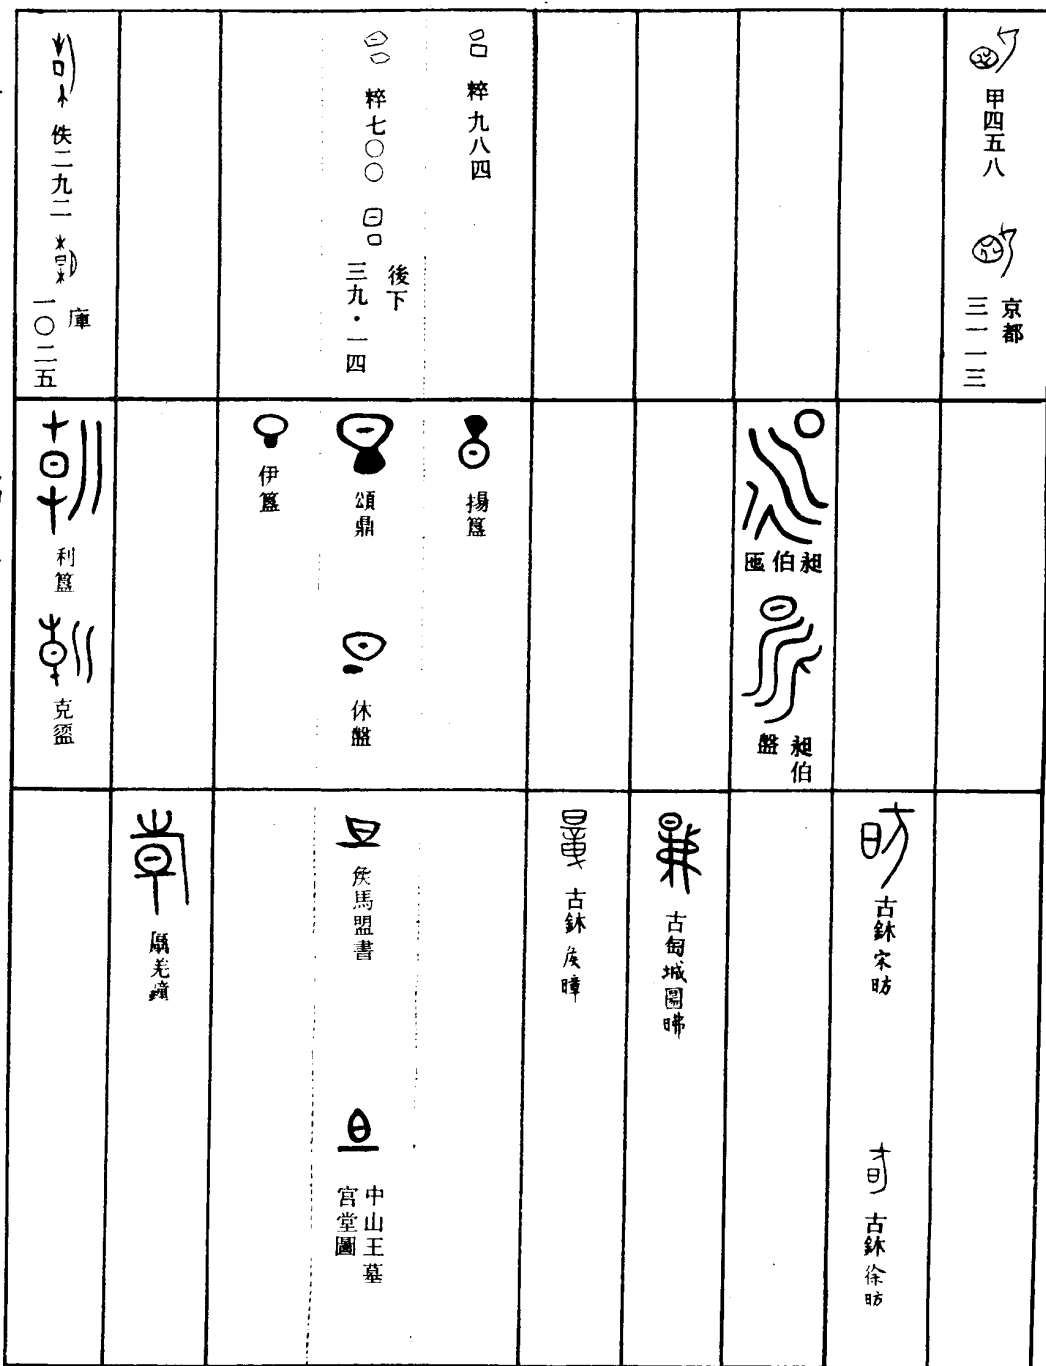 甲四五八
京都
三一一三
粹九八四
粹七〇〇
後下
三九・一四
佚二九二
庫
一〇二五
昶伯匜
昶伯
盤
揚簋
頌鼎
休盤
伊簋
利簋
克盨
古鉨宋昉
古鉨徐昉
古匋城圖昲
古鉨矦暲
矦馬盟書
中山王墓
宮堂圖
羌鐘